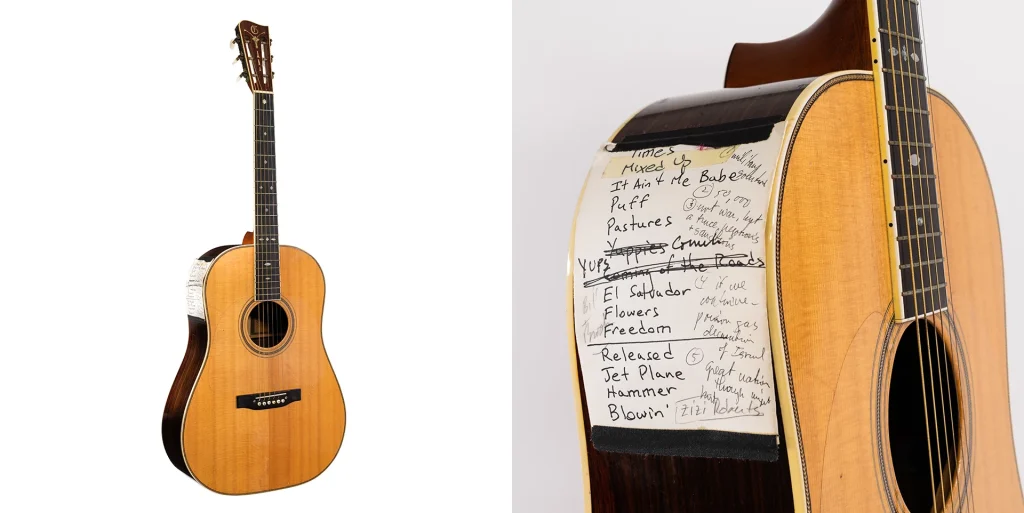 Times
Mixed Up
It Ain't Me Babe
Puff
Pastures
Yuppies
YUPS
Coming of the Roads
El Salvador
Flowers
Freedom
Released
Jet Plane
Hammer
Blowin'
② 50,000
③ not war, but
a truce,
+ sanctions
if we
continue-
poison gas
of Israel
⑤
Great nation
though might
Zizi Roberts